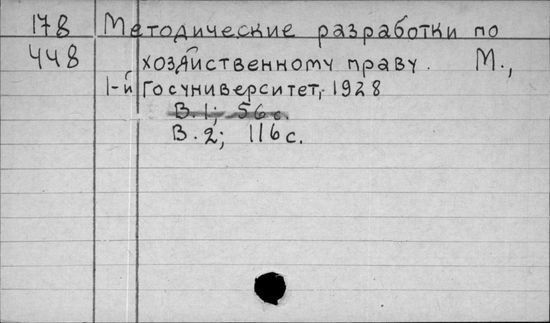 178 Методические разработки по
448 хозяйственному праву. М.,
1-й Госуниверситет, 1928
В. 1; 56 с.
В. 2; 116 с.